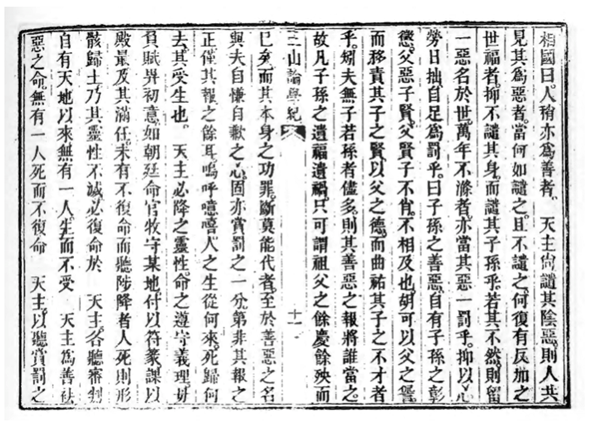 相國曰人亦爲善者 天主尚譴其陰惡則人共
見其爲惡者當何如譴之且不譴之何復有反加之
世福者抑不譴其身而譴其子孫乎若其不然則留
一惡名於世萬年不滌者亦當其惡一罰乎抑以心
勞日拙自足爲罰乎曰子孫之善惡自有子孫之彰
懲父惡子賢父賢子不肖不相及也胡可以父之諐
而移責其子之賢以父之德而曲祐其子之不才者
乎矧夫無子若孫者儘多則其善惡之報將誰當之
故凡子孫之遺福遺禍只可謂祖父之餘慶餘殃而
三山論學紀 十一
已矣而其本身之功罪斷莫能代者至於善惡之名
與夫自慊自歉之心固亦賞罰之一分第非其報之
正僅其報之餘耳嗚呼噫嘻人之生從何來死歸何
去其受生也 天主必降之靈性命之遵守義理毋
負賦畀初意如朝廷命官牧守某地付以符篆課以
殿最及其滿任未有不復命而聽陟降者人死則形
骸歸土乃其靈性不滅必復命於 天主各聽審判
自有天地以來無有一人生而不受 天主爲善祛
惡之命無有一人死而不復命 天主以聽賞罰之